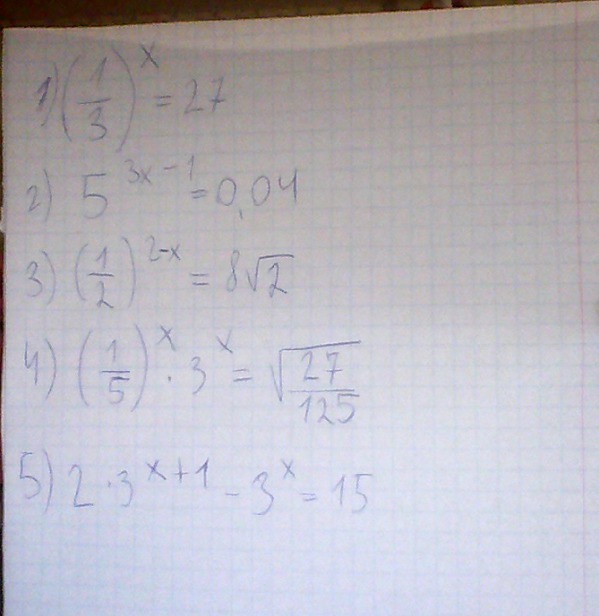 1) (1/3)^x = 27
2) 5^(3x-1) = 0,04
3) (1/2)^(2-x) = 8√2
4) (1/5)^x · 3^x = √(27/125)
5) 2·3^(x+1) - 3^x = 15